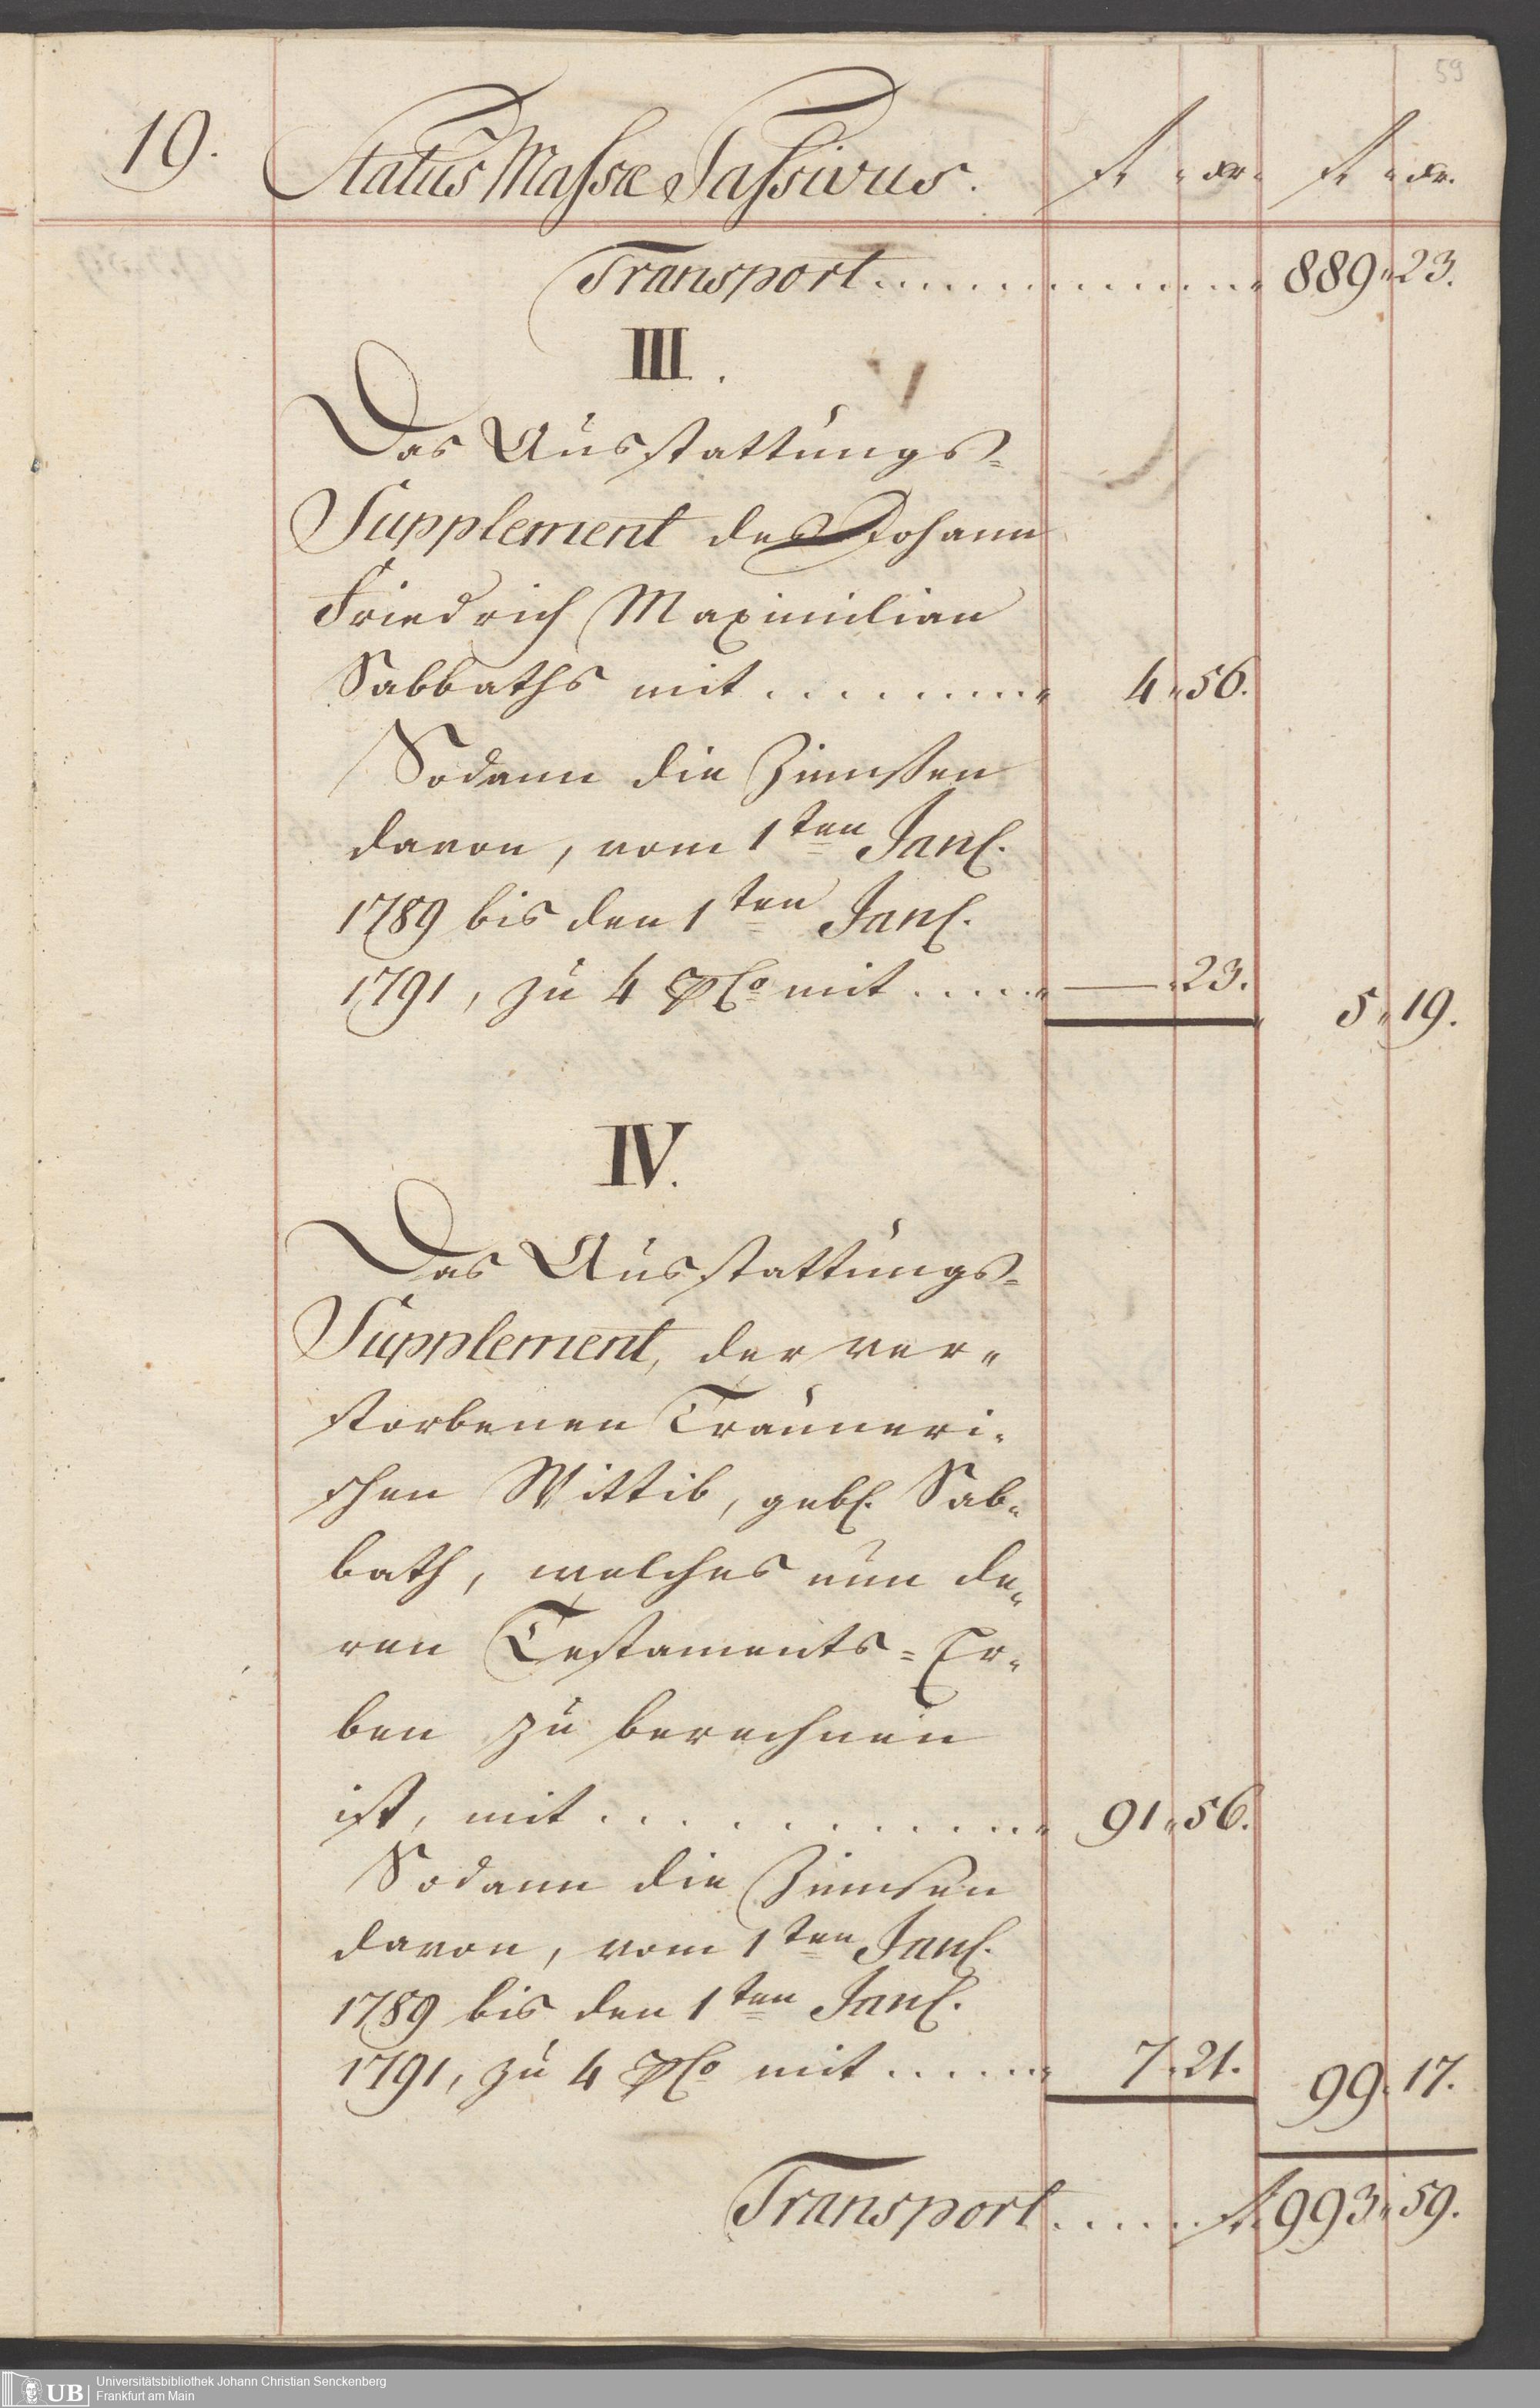 59
19. Status Massæ Passivus. fl xr fl xr.
Transport . . . . . . . . . . . . . 889 " 23.
III.
Das Ausstattungs=
Supplement des Johann
Friedrich Maximilian
Sabbaths mit . . . . . . . . . " 4 " 56.
Sodann die Zinnßen
davon, vom 1ten Jan.
1789 bis den 1ten Jan.
1791, zu 4 pCo mit . . . . . " — " 23.
5 " 19.
IV.
Das Ausstattungs=
Supplement, der ver=
storbenen Trauneri=
schen Wittib, geb. Sab=
bath, welches nun de=
ren Testaments=Er=
ben zu berechnen
ist, mit . . . . . . . . . . . " 91 " 56.
Sodann die Zinnsen
davon, vom 1ten Jan.
1789 bis den 1ten Jan.
1791, zu 4 pCo mit . . . . . . " 7 " 21. 99 " 17.
Transport . . . . . fl 993 " 59.
UB Universitätsbibliothek Johann Christian Senckenberg
Frankfurt am Main